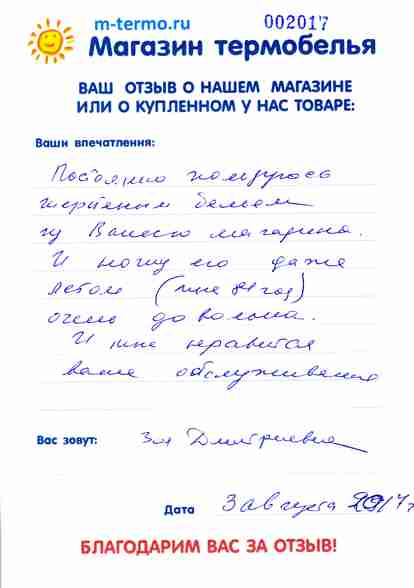 m-termo.ru
002017
Магазин термобелья
ВАШ ОТЗЫВ О НАШЕМ МАГАЗИНЕ
ИЛИ О КУПЛЕННОМ У НАС ТОВАРЕ:
Ваши впечатления:
Постоянно пользуюсь
бельем
из Вашего магазина.
И ношу его даже
летом (мне 81 год)
очень довольна.
И мне нравится
ваше обслуживание
Вас зовут:
Дмитриевна
Дата
3 августа 2017г
БЛАГОДАРИМ ВАС ЗА ОТЗЫВ!